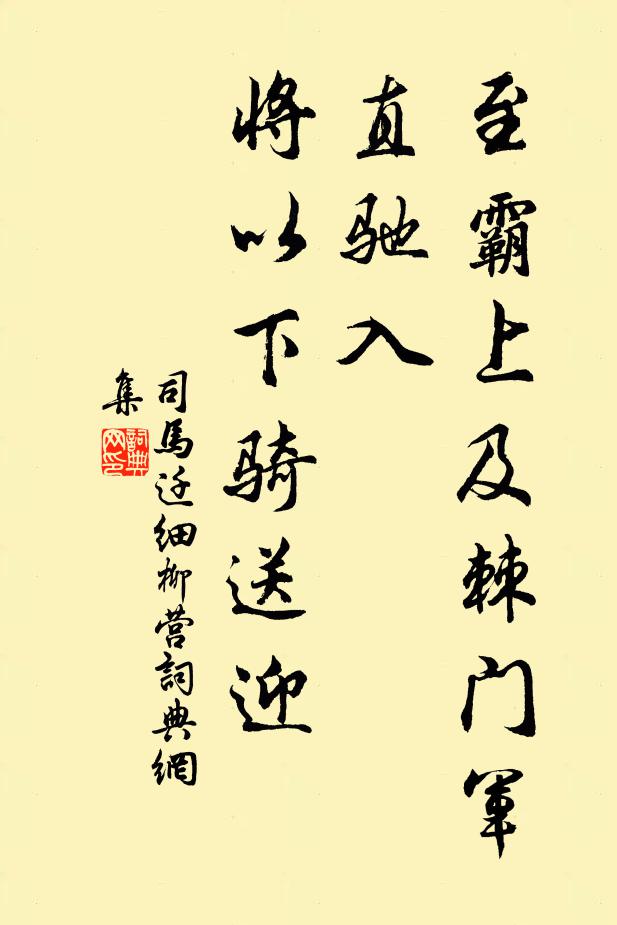 至霸上及棘门軍
直驰入
将以下骑送迎
司馬迁细柳营詞典網
集
詞典
网印